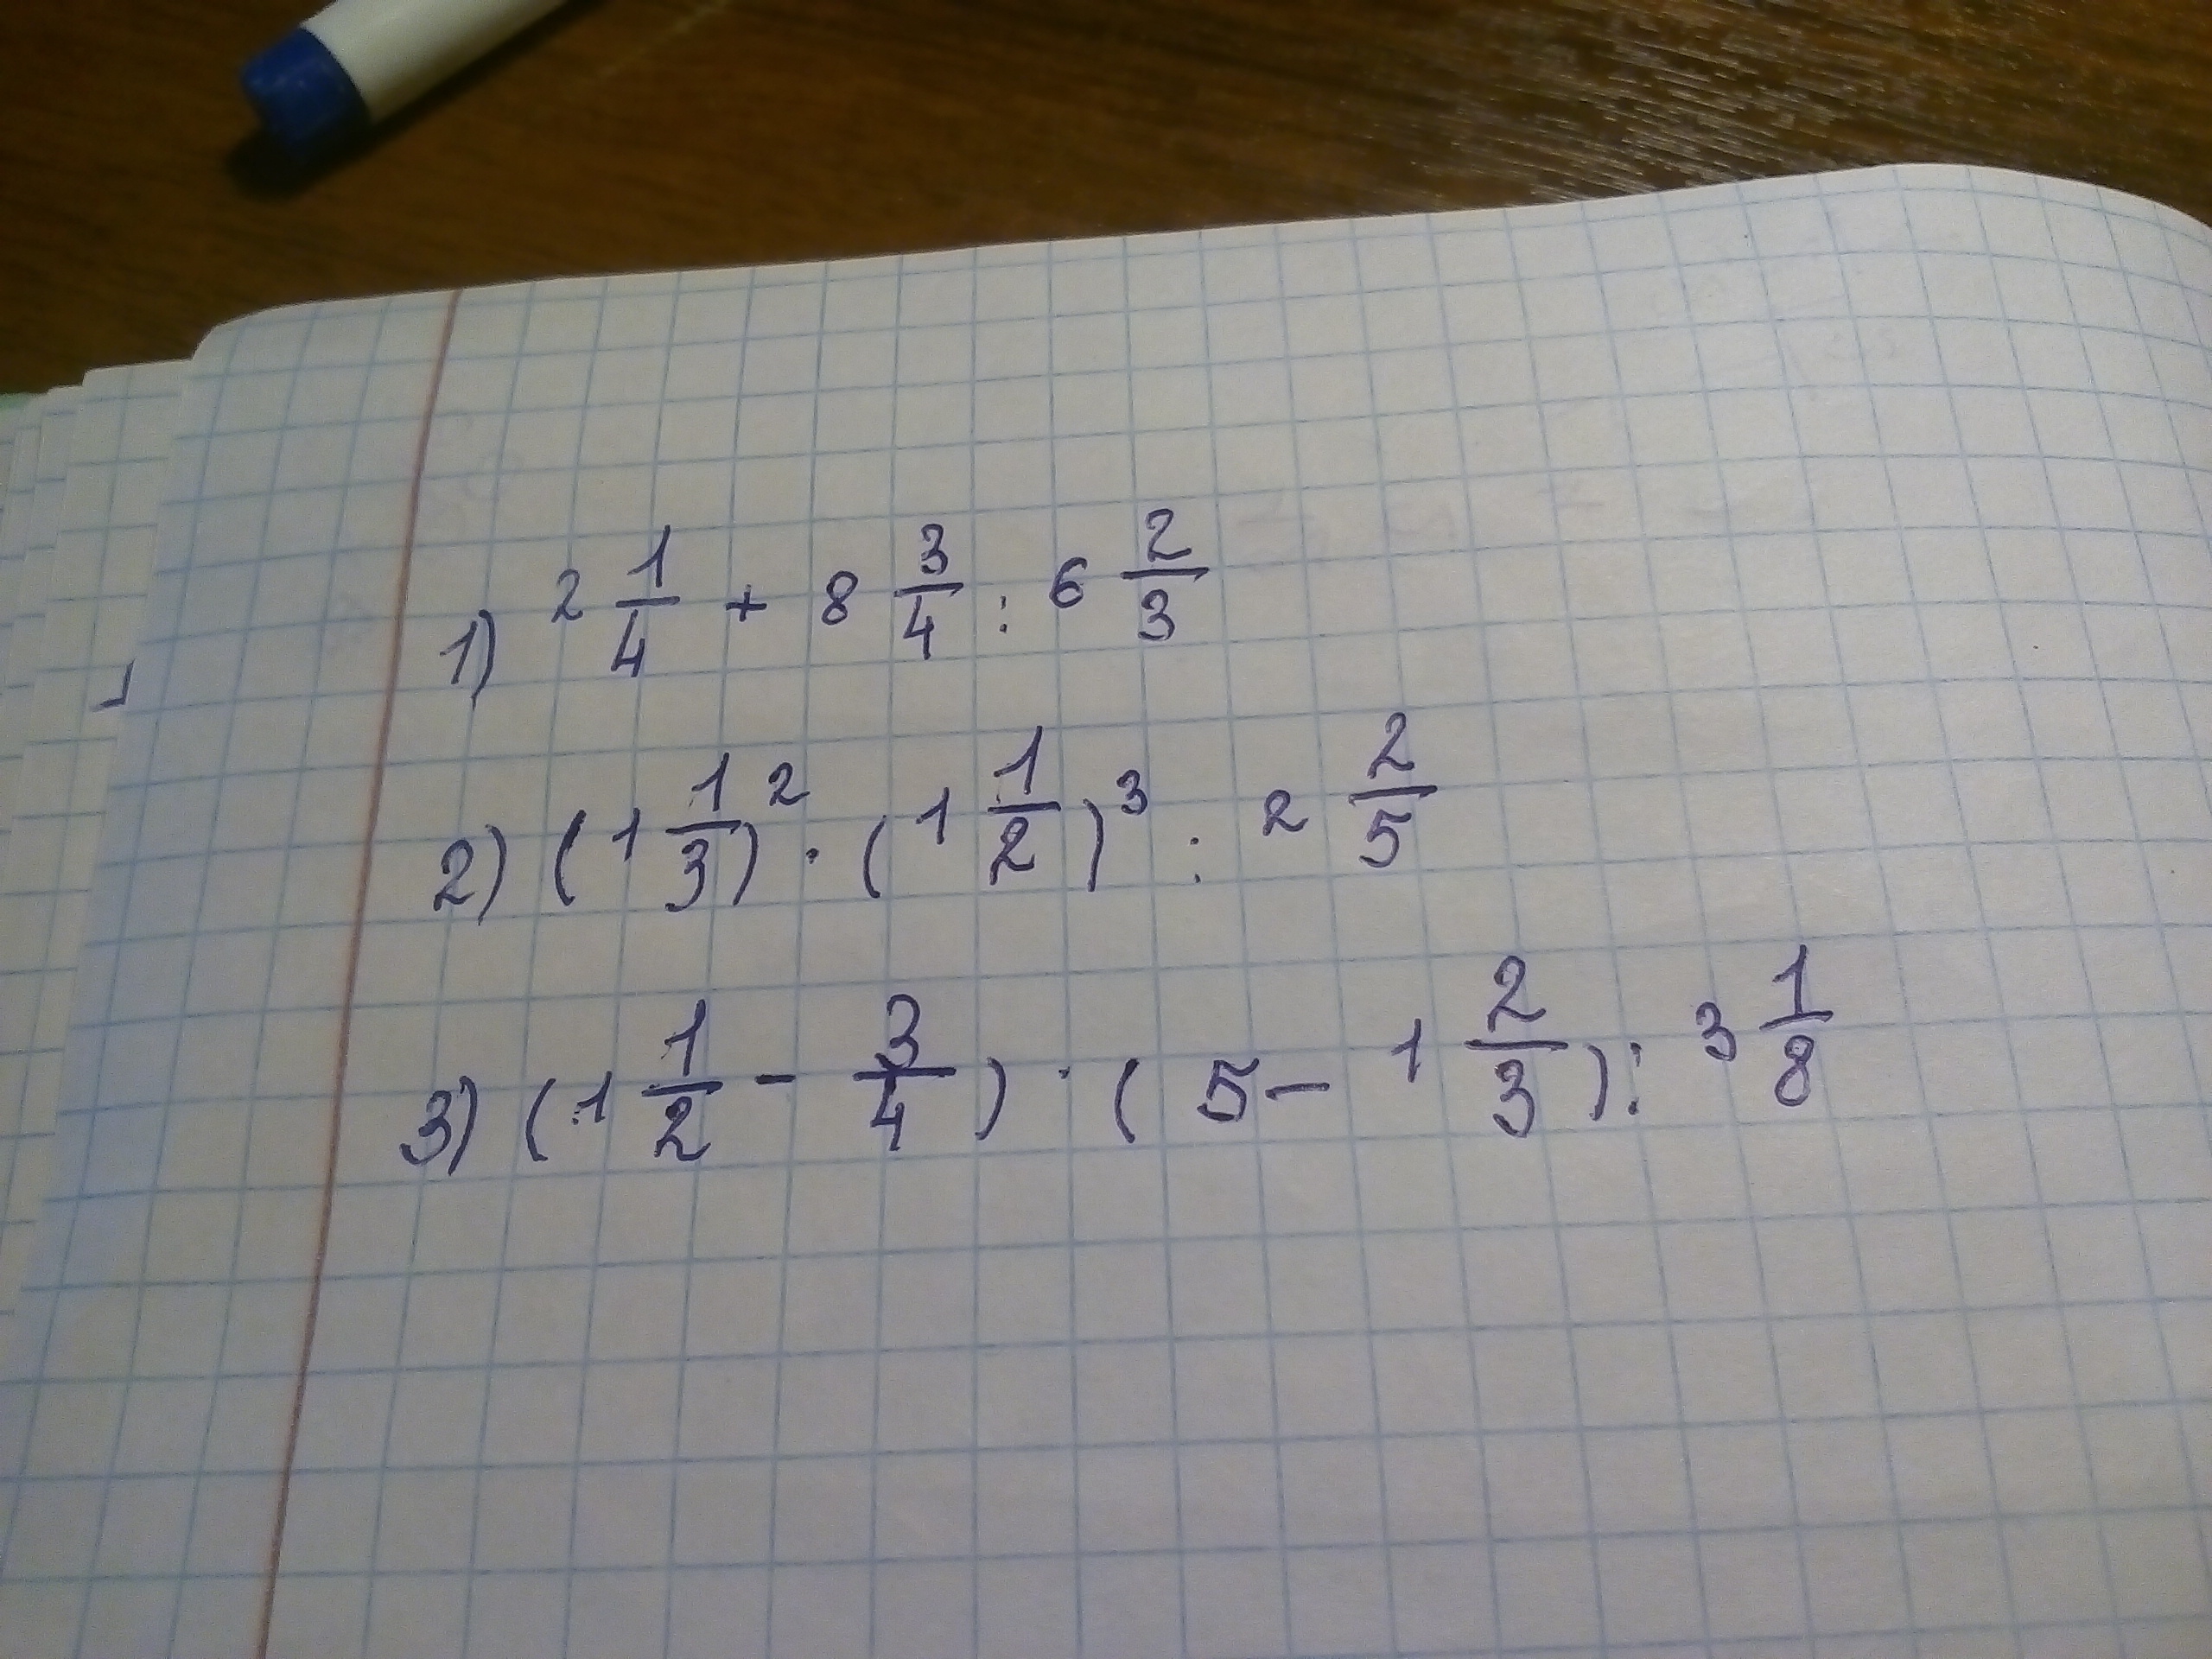 1) 2 1/4 + 8 3/4 : 6 2/3
2) (1 1/3)² · (1 1/2)³ : 2 2/5
3) (1 1/2 - 3/4) · (5 - 1 2/3) : 3 1/8